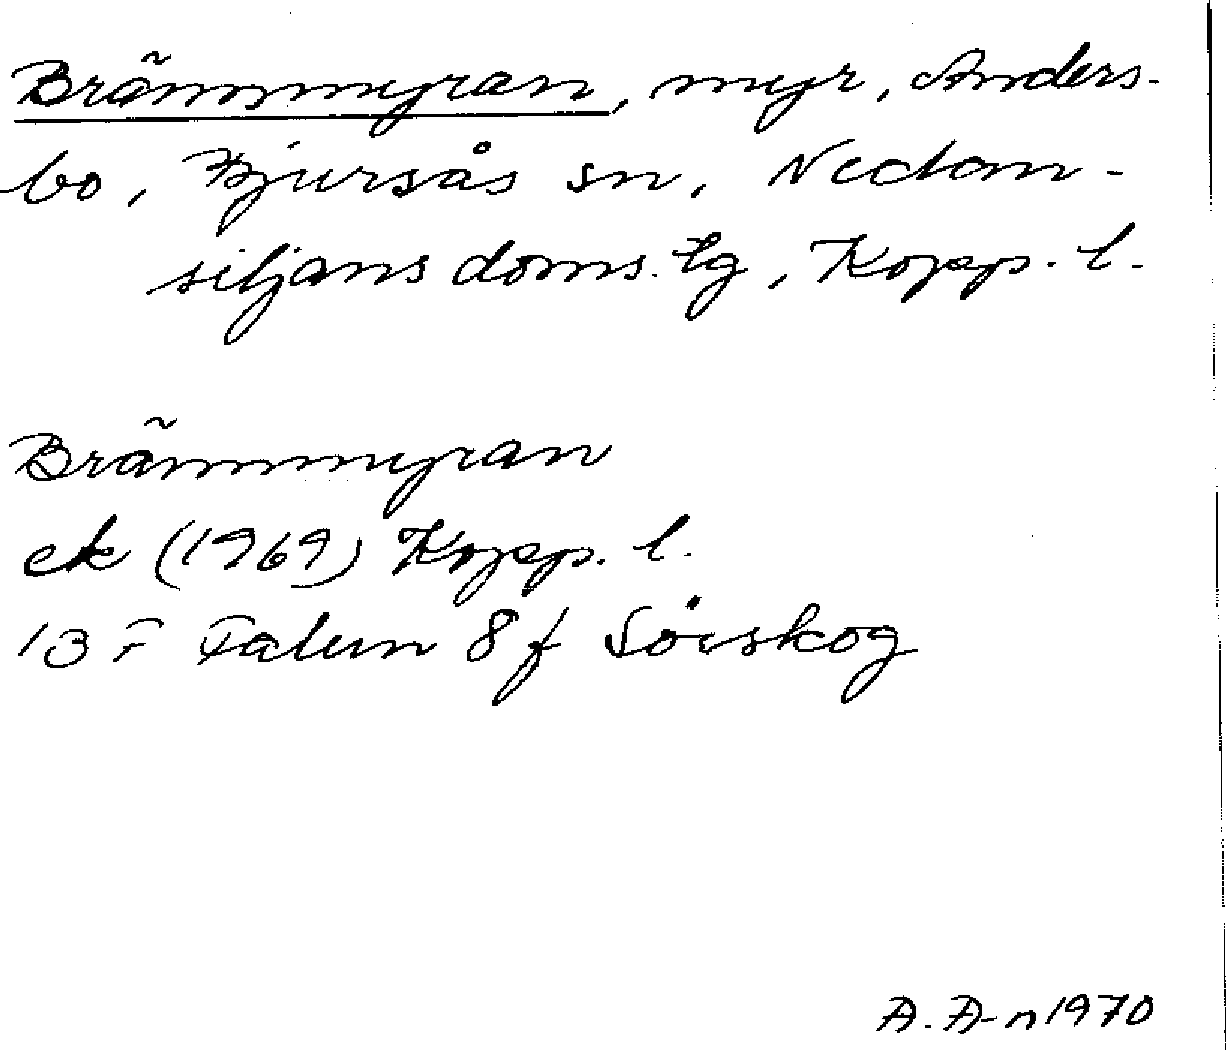 Brämmyran, myr, Anders-
bo, Bjursås sn, Nedan-
siljans doms. lg, Kopp. l.
Brämmyran
ek (1969) Kopp. l.
13 F Falun 8 f Sörskog
A. A-n 1970